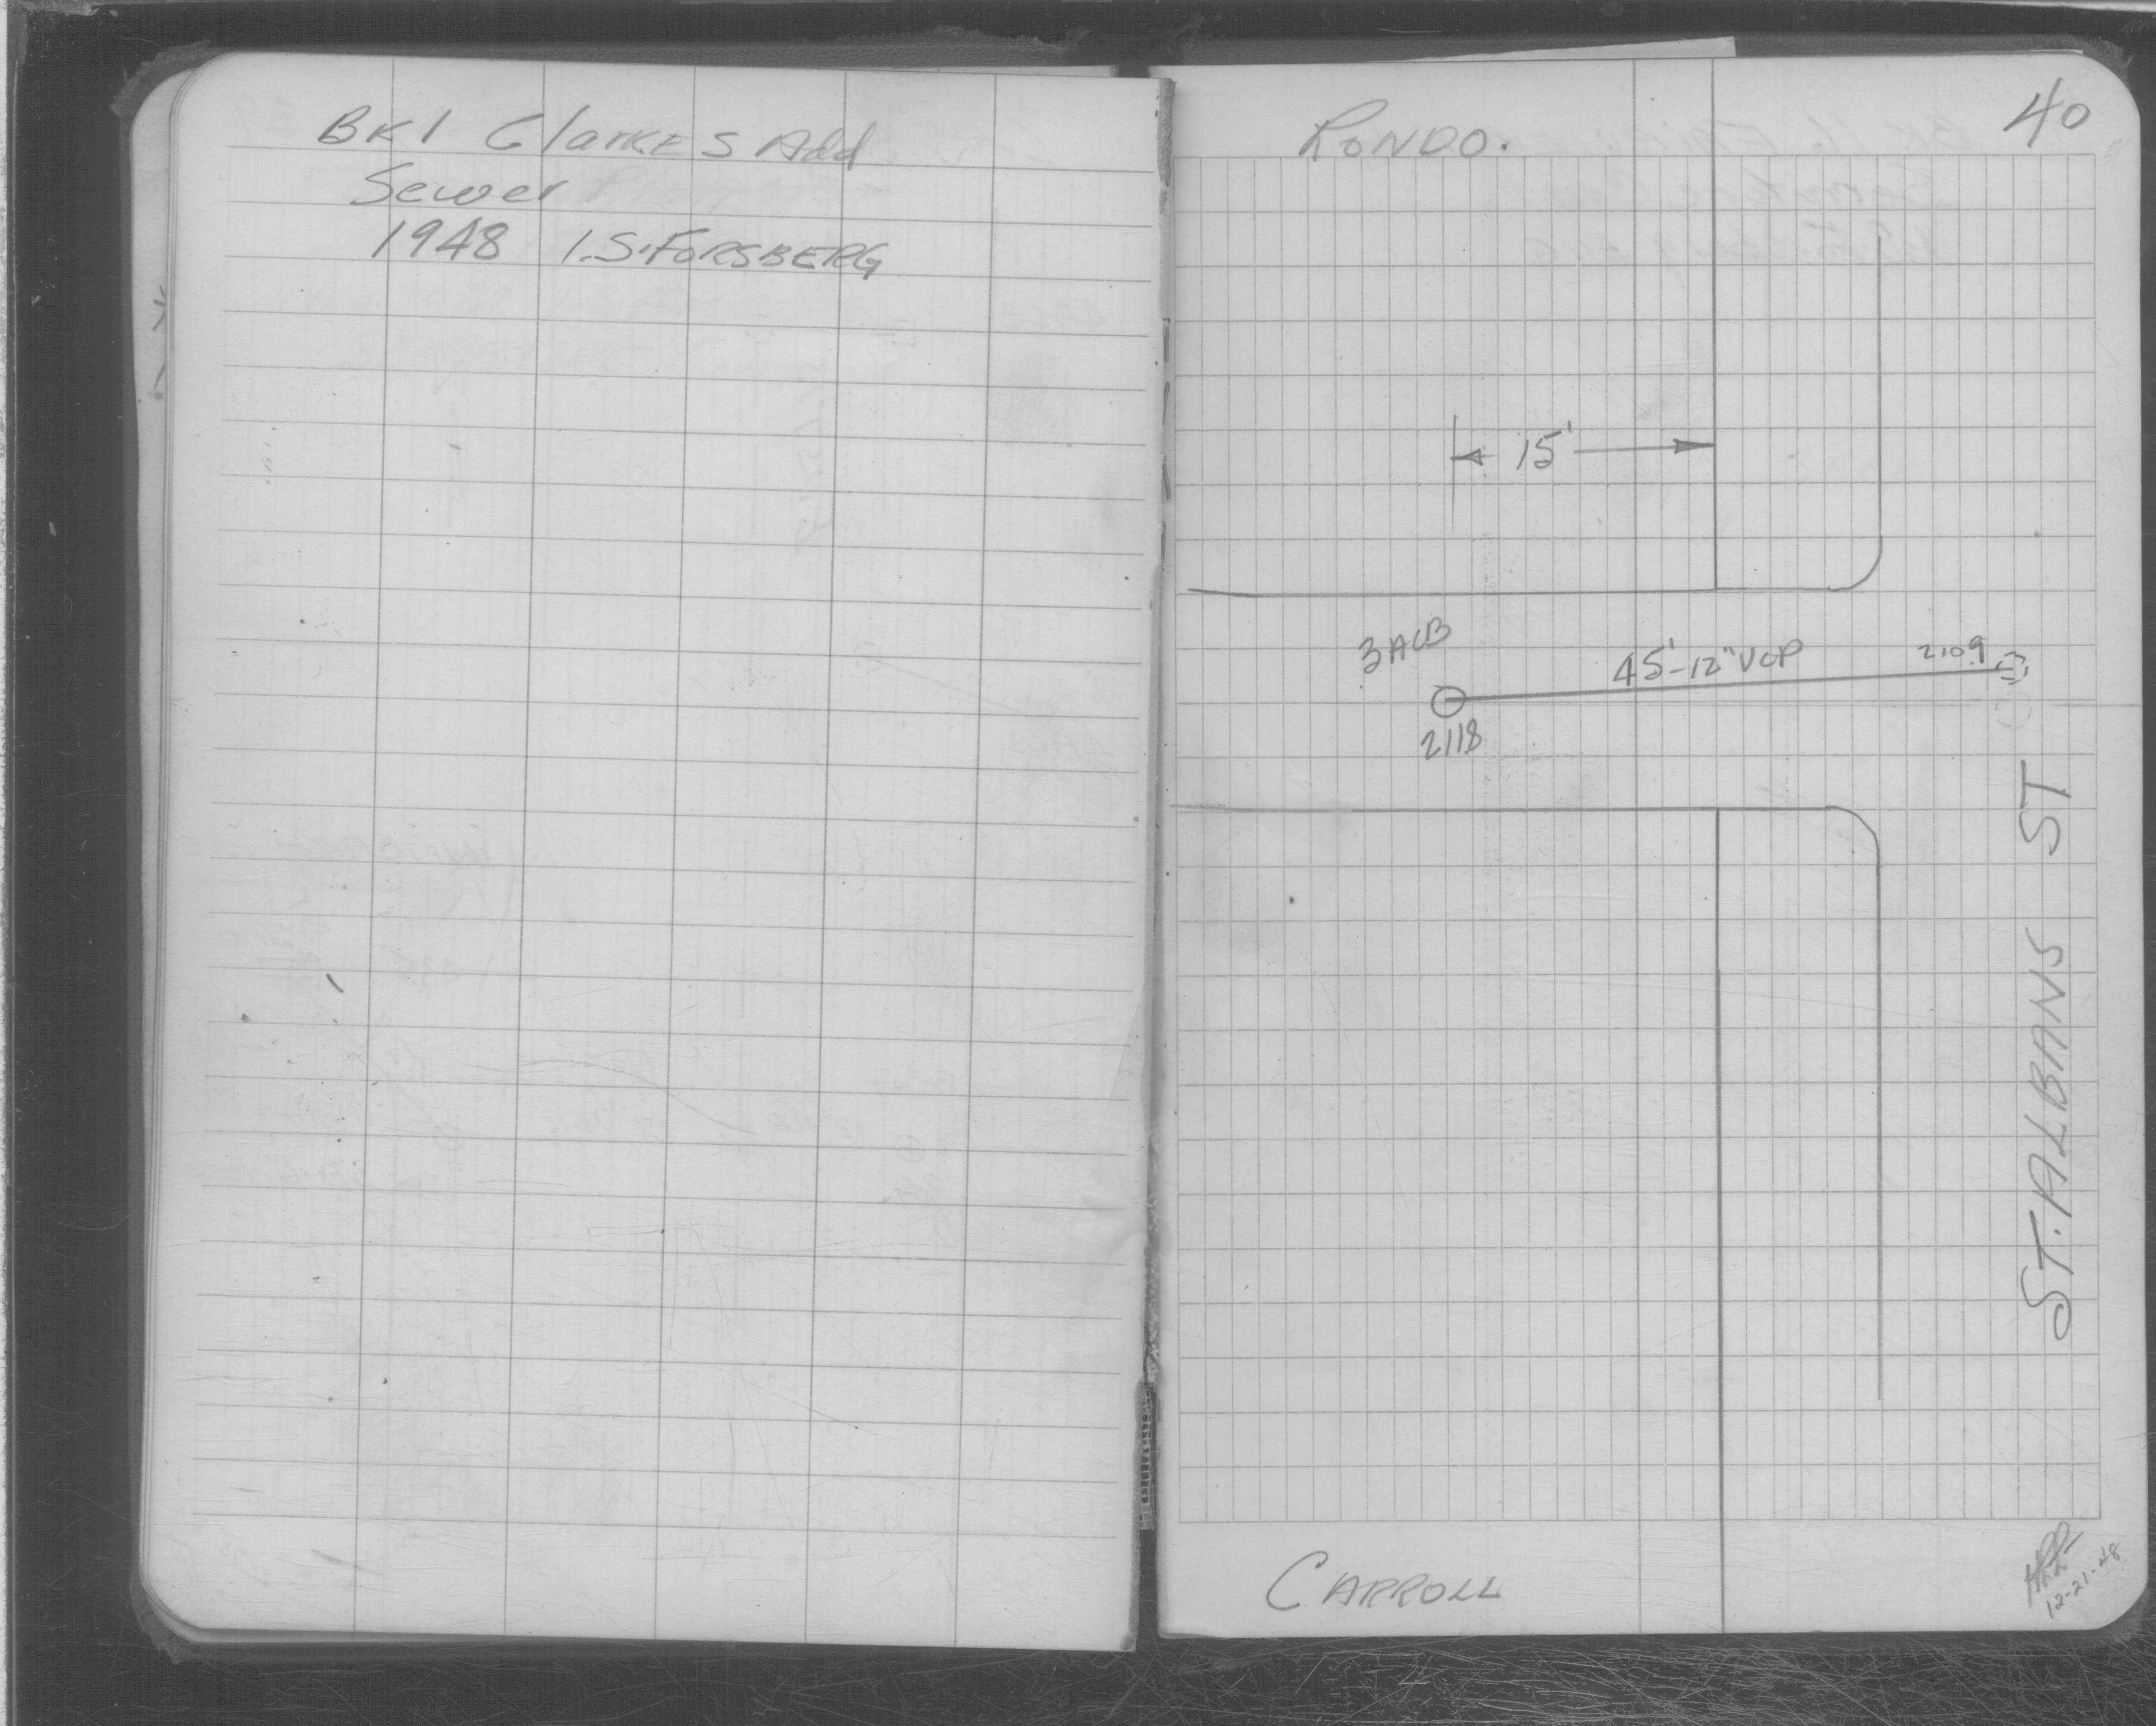 BK 1 Clarkes Add
Sewer
1948 I.S. FORSBERG
40
RONDO.
15'
45'-12" VCP
2109
2118
ST. ALBANS ST
CARROLL
12-21-48